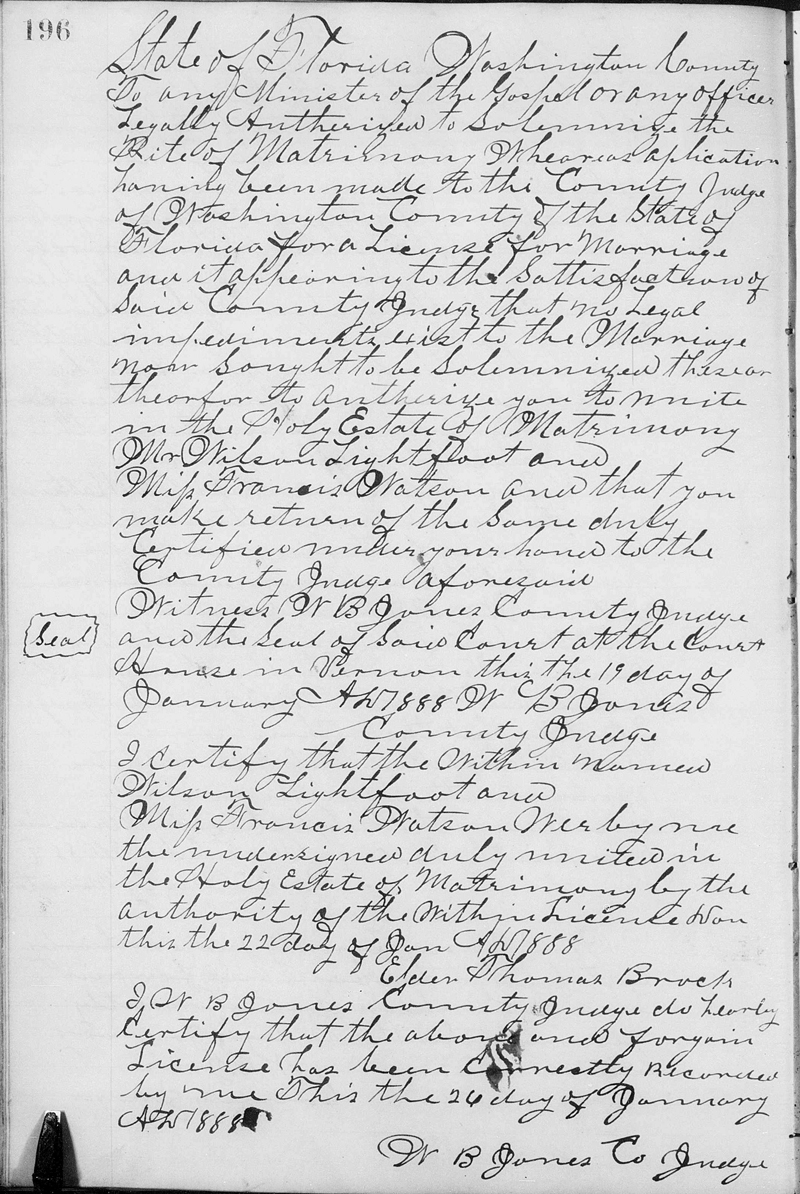 196
State of Florida Washington County
To any Minister of the Gospel or any officer
Legally Autherized to Solemnize the
Rite of Matrimony Whereas aplication
having been made to the County Judge
of Washington County of the State of
Florida for a License for Marriage
and it appearing to the Sattisfaction of
Said County Judge that no Legal
impediments exist to the Marriage
now Sought to be Solemnized these ar
thearfor to autherize you to unite
in the Holy Estate of Matrimony
Mr Wilson Lightfoot and
Miss Francis Watson and that you
make return of the Same duly
Certified under your hand to the
County Judge aforesaid
Witness W B Jones County Judge
Seal
and the Seal of Said Court at the Court
House in Vernon this the 19 day of
January AD 1888 W B Jones
County Judge
I certify that the Within named
Wilson Lightfoot and
Miss Francis Watson Wer by me
the undersigned duly united in
the Holy Estate of Matrimony by the
authority of the Within License Don
this the 22 day of Jan AD 1888
Elder Thomas Brock
I W B Jones County Judge do hearby
Certify that the above and forgoin
License has been Correctly Recorded
by me This the 26 day of January
AD 1888
W B Jones Co Judge